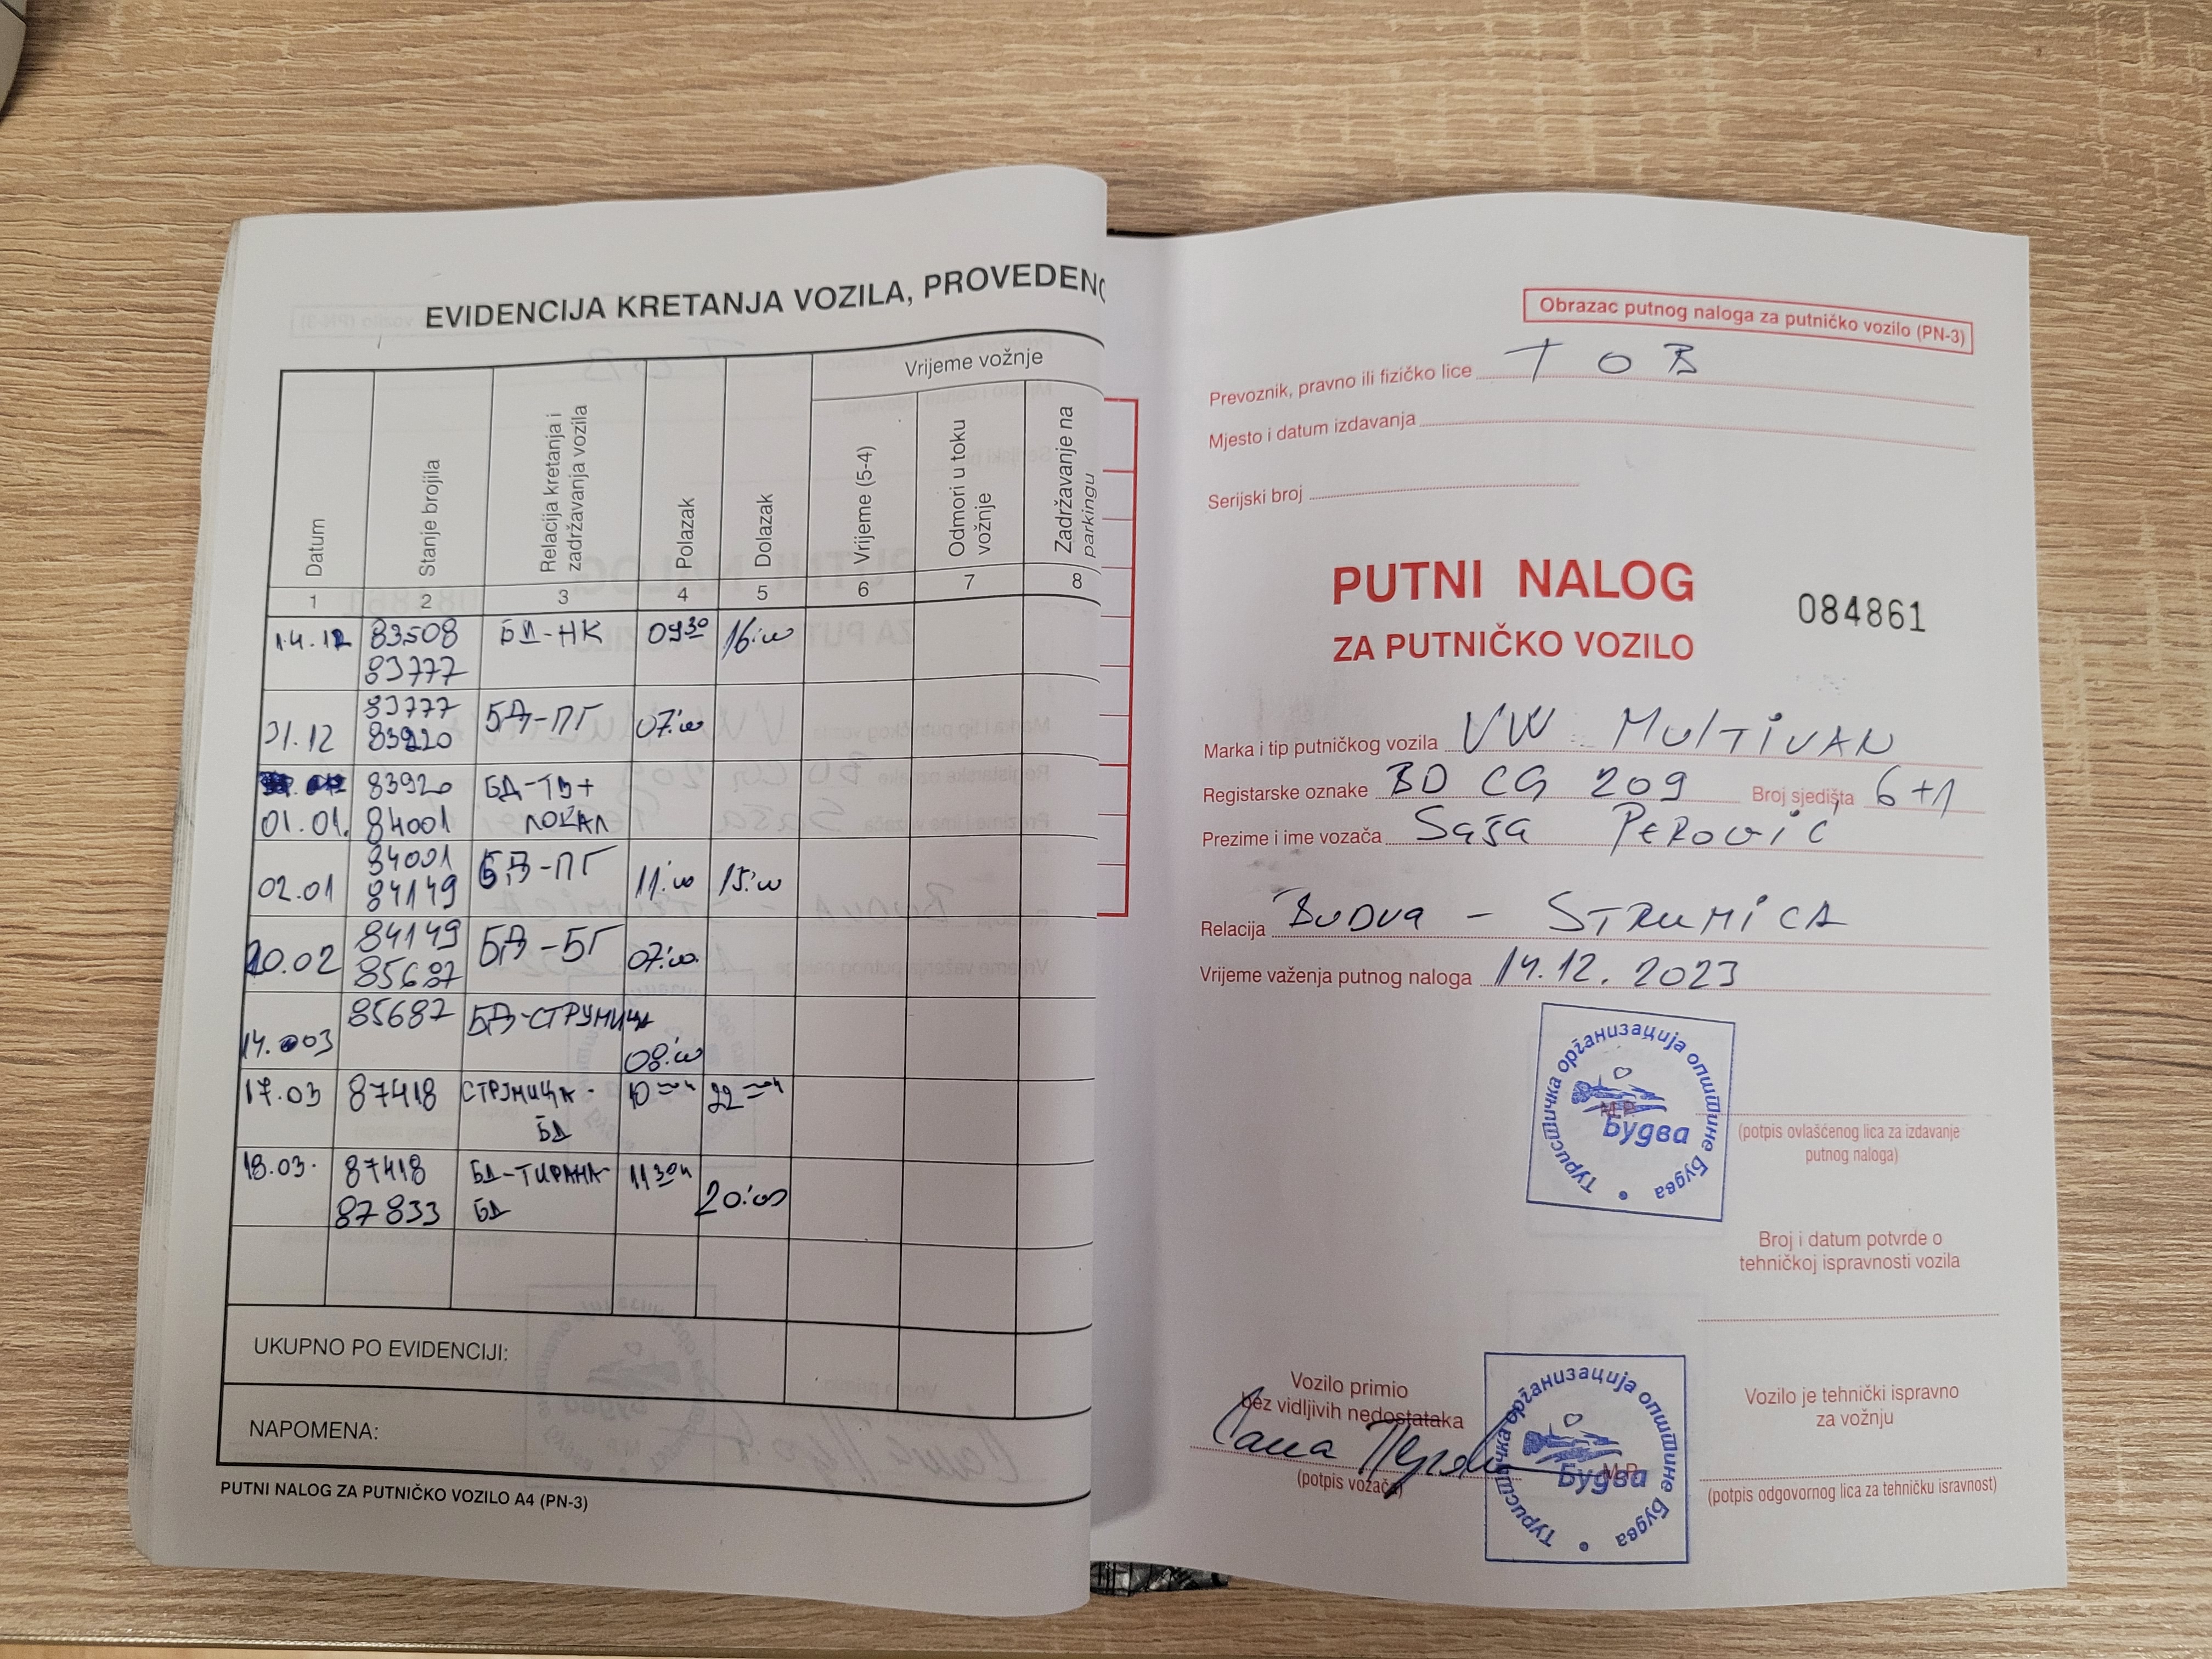 EVIDENCIJA KRETANJA VOZILA, PROVEDENO
Datum
Stanje brojila
Relacija kretanja i zadržavanja vozila
Polazak
Dolazak
Vrijeme vožnje
Vrijeme (5-4)
Odmori u toku vožnje
Zadržavanje na parkingu
1 2 3 4 5 6 7 8
14.12 83508 БД-НК 09 30 16:00
83777
83777
31.12 83920 БД-ПГ 07:00
83920 БД-ТВ+
01.01. 84001 ЛОКАЛ
84001
02.01 84149 БД-ПГ 11:00 15:00
84149
10.02 85687 БД-БГ 07:00
85687 БД-СТРУМИЦА
14.03 08:00
17.03 87418 СТРУМИЦА- 10 22
БД
18.03. 87418 БД-ТИРАНА- 11 30h
87833 БД 20:00
UKUPNO PO EVIDENCIJI:
NAPOMENA:
PUTNI NALOG ZA PUTNIČKO VOZILO A4 (PN-3)
Obrazac putnog naloga za putničko vozilo (PN-3)
Prevoznik, pravno ili fizičko lice TOB
Mjesto i datum izdavanja
Serijski broj
PUTNI NALOG
084861
ZA PUTNIČKO VOZILO
Marka i tip putničkog vozila VW MULTIVAN
Registarske oznake BD CG 209 Broj sjedišta 6+1
Prezime i ime vozača Saša PEROVIĆ
Relacija BUDVA - STRUMICA
Vrijeme važenja putnog naloga 14.12.2023
Туристичка организација општине Будва
Будва
M.P.
(potpis ovlašćenog lica za izdavanje
putnog naloga)
Broj i datum potvrde o
tehničkoj ispravnosti vozila
Vozilo primio
bez vidljivih nedostataka
(potpis vozača)
Туристичка организација општине Будва
Будва
M.P.
Vozilo je tehnički ispravno
za vožnju
(potpis odgovornog lica za tehničku isravnost)